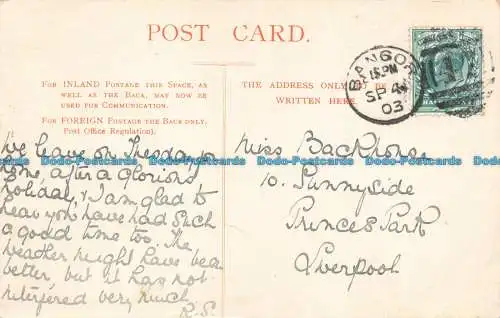 POST CARD.
FOR INLAND POSTAGE THIS SPACE, AS
WELL AS THE BACK, MAY NOW BE
USED FOR COMMUNICATION.
FOR FOREIGN POSTAGE THE BACK ONLY.
Post Office Regulation).
THE ADDRESS ONLY BE
WRITTEN HERE.
BANGOR
SP 4
03
HALFPENNY
We leave on Thesday, for
home, after a glorious
holiday, & I am glad to
hear you have had such
a good time too. The
weather might have been
better, but it has not
interfered very much
R.S.
Miss Backhouse
10. Sunnyside
Princes Park
Liverpool
Dodo-Postcards.com